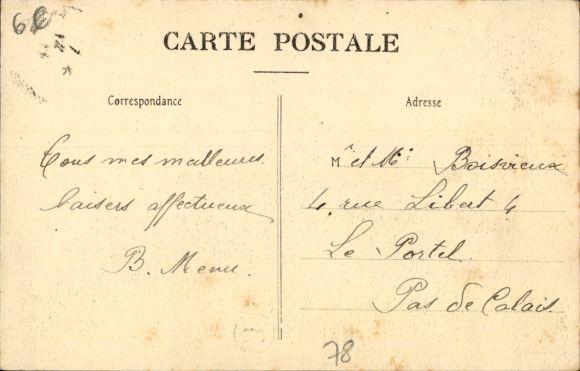 6€
CARTE POSTALE
Correspondance
Tous mes meilleures
baisers affectueux
B. Menu.
Adresse
Mr et Me Boisvieux
4, rue Libert 4
Le Portel
Pas de Calais.
78